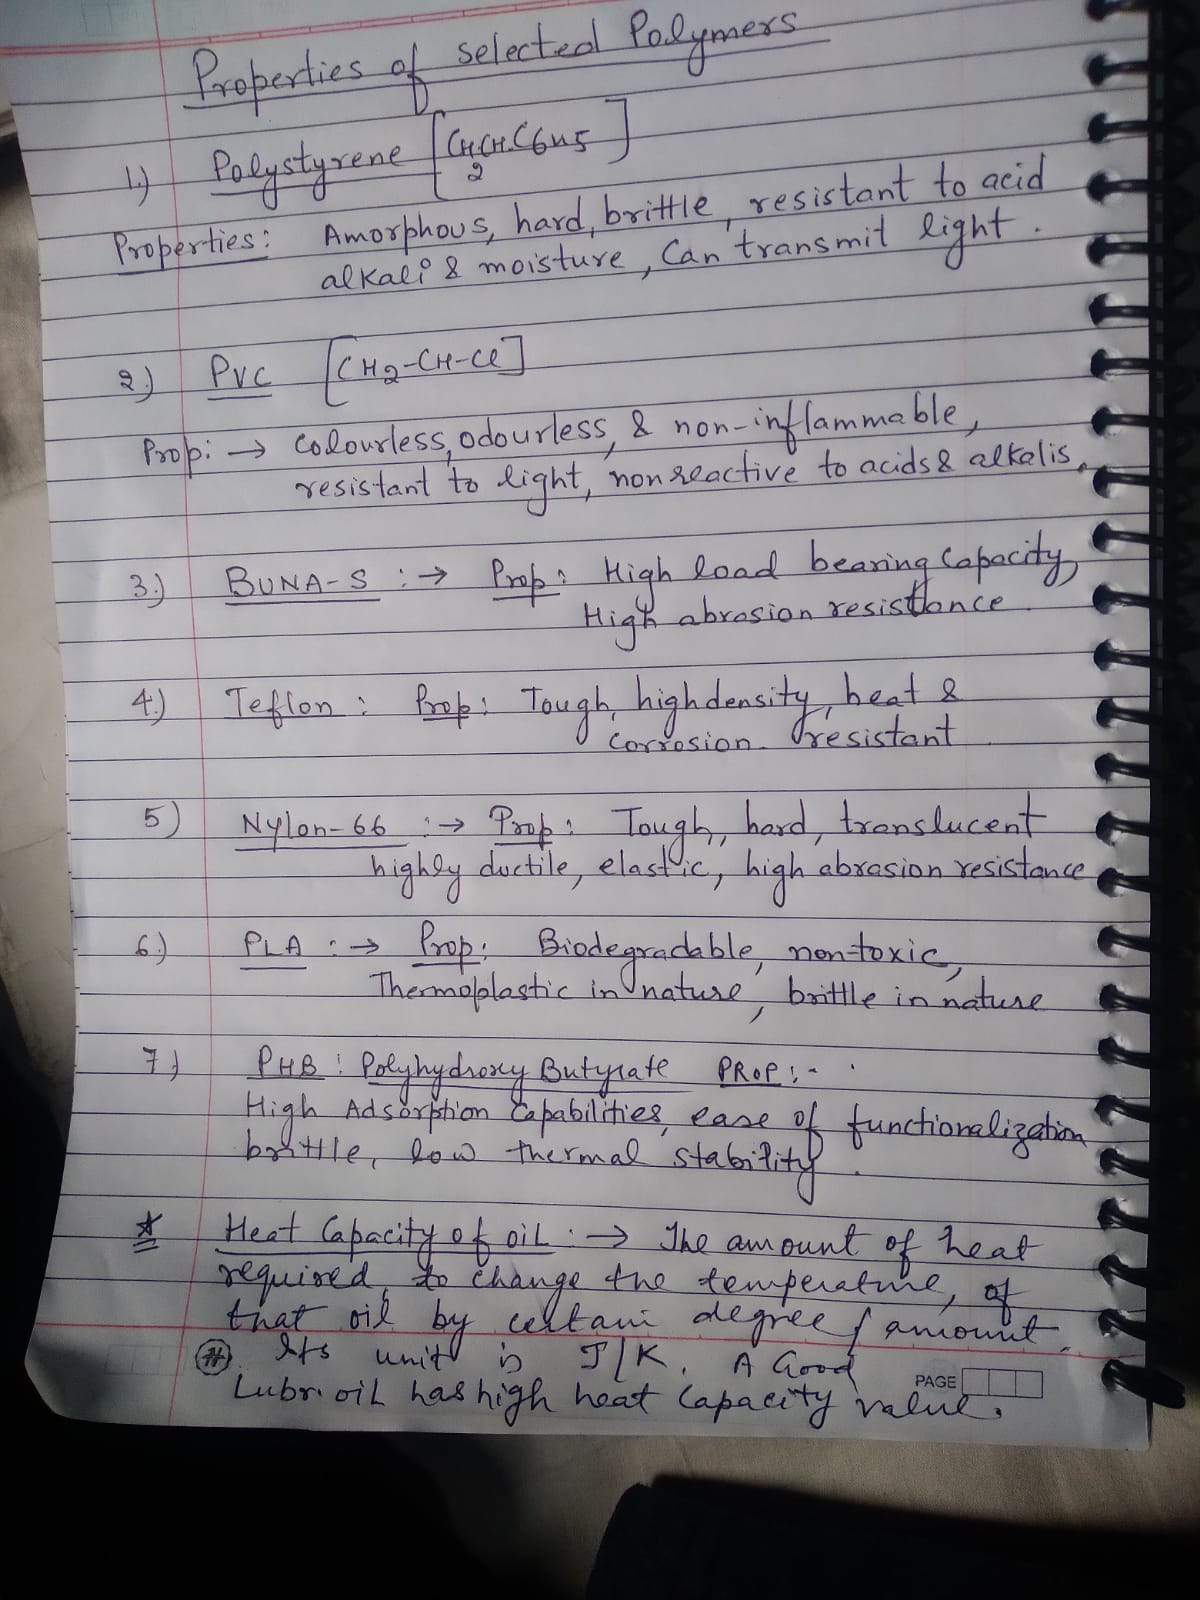 Properties of selected Polymers
1.) Polystyrene [CH2CH.C6H5]
Properties: Amorphous, hard, brittle, resistant to acid
alkali & moisture, Can transmit light.
2.) PVC [CH2-CH-Cl]
Prop: → Colourless, odourless, & non-inflammable,
resistant to light, non reactive to acids & alkalis.
3.) BUNA-S :→ Prop: High load bearing Capacity,
High abrasion resistance
4.) Teflon : Prop: Tough, high density, heat &
corrosion resistant
5) Nylon-66 :→ Prop: Tough, hard, translucent
highly ductile, elastic, high abrasion resistance
6.) PLA :→ Prop: Biodegradable, non-toxic,
Thermoplastic in nature, brittle in nature
7.) PHB : Polyhydroxy Butyrate PROP :-
High Adsorption Capabilities, ease of functionalization
brittle, low thermal stability.
* Heat Capacity of oil :→ The amount of heat
required to change the temperature, of
that oil by certain degree / amount.
# Its unit is J/K. A Good
PAGE
Lubri oil has high heat capacity value.